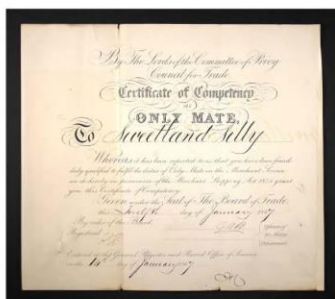 By The Lords of the Committee of Privy
Council for Trade
Certificate of Competency
as
ONLY MATE,
To Sweetland Selly
Whereas it has been reported to us that you have been found
duly qualified to fulfil the duties of Only Mate in the Merchant Service,
we do hereby in pursuance of the Merchant Shipping Act 1854 grant
you this Certificate of Competency.
Given under the Seal of the Board of Trade
this day of January
By order of the Board,
Registered
Entered at the General Register and Record Office of Seamen
on the day of January